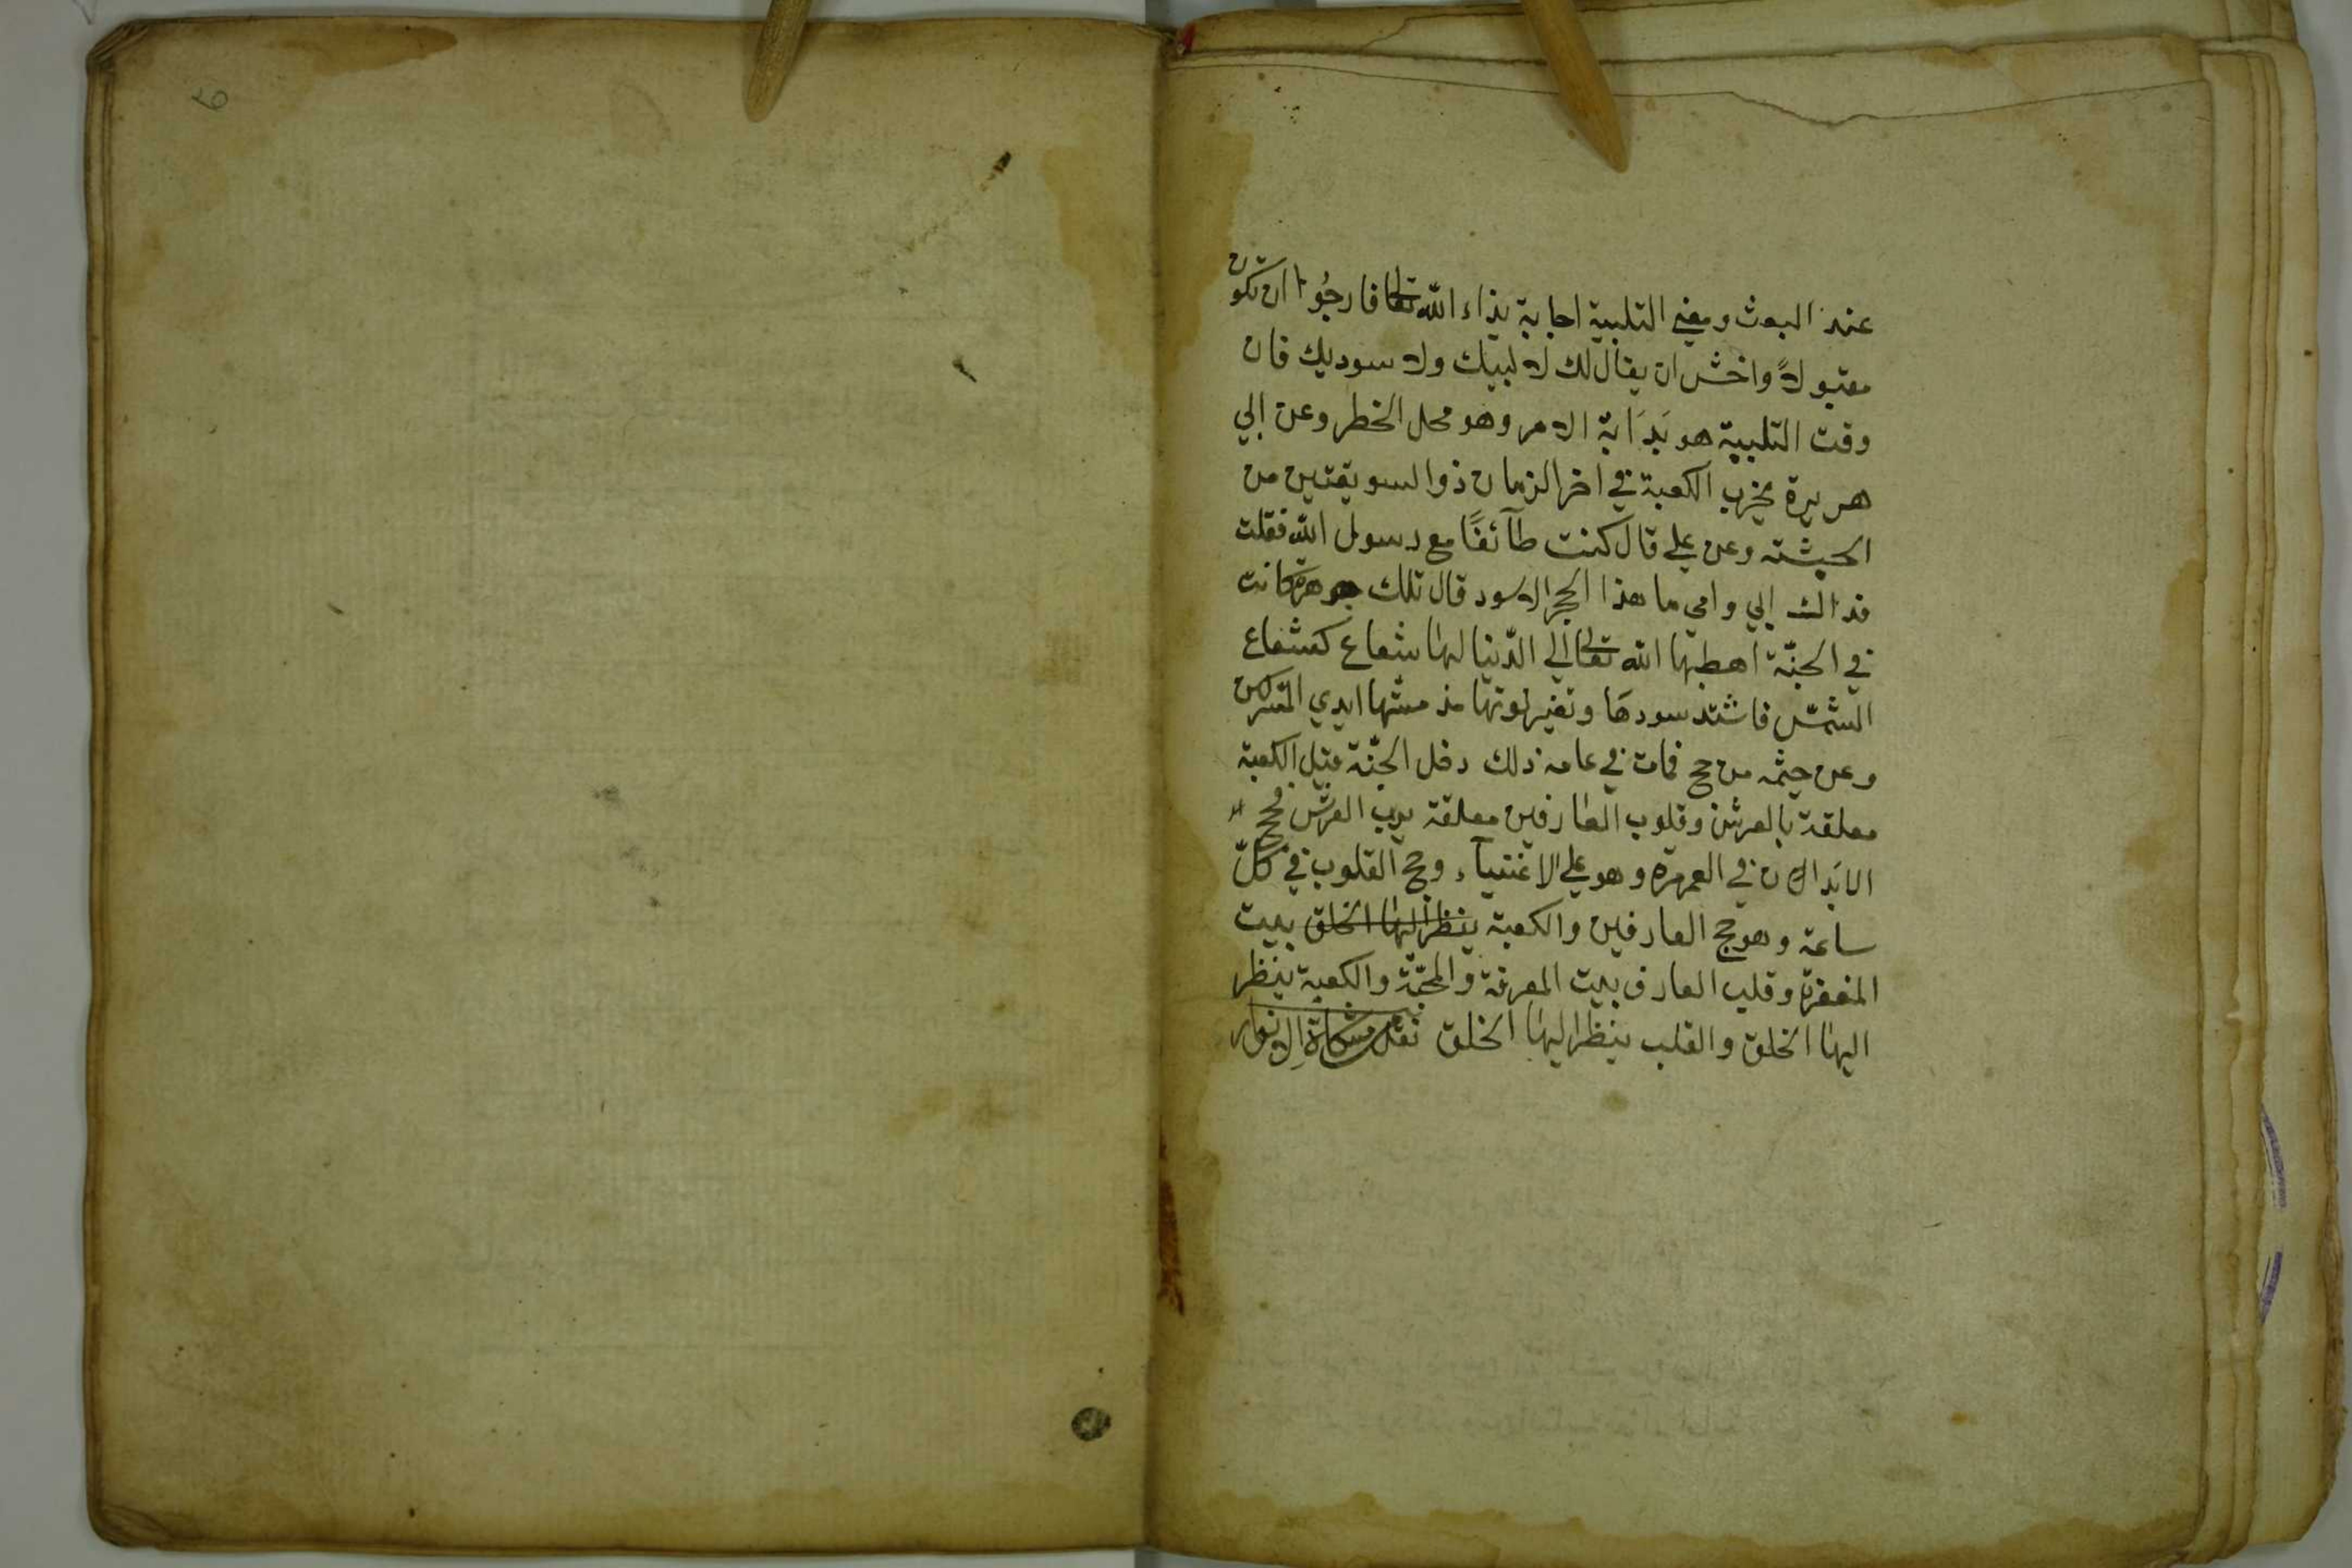 عند البعث ومعنى التلبية اجابة نداء الله تعالى فارجوا ان تكون
مقبولاً واخش ان يقال لك لا لبيك ولا سعديك فان
وقت التلبية هو بَدَاية الامر وهو محل الخطر وعن ابي
هريرة يخرب الكعبة في اخر الزمان ذوا السويقتين من
الحبشة وعن علي قال كنت طآئفًا مع رسول الله فقلت
فداك ابي وامي ما هذا الحجر الاسود قال تلك جوهرة كانت
في الجنّة اهبطها الله تعالى الي الدّنيا لها شعاع كشعاع
الشمس فاشتد سودها وتغير لونها مذ مستها ايدي المشركين
وعن حيثمه من حج فمات في عامه ذلك دخل الجنّة قيل الكعبة
معلقة بالعرش وقلوب العارفين معلقة برب العرش فحج
الابَدان في العمر مرة وهو علي الاغنيآء وحج القلوب في كلّ
ساعة وهو حج العارفين والكعبة ينظر اليها الخلق بيت
المغفرة وقلب العارف بيت المعرفة والمحبّة والكعبة ينظر
اليها الخلق والقلب ينظر اليها الخلق نقل مشكاة الانوار
6